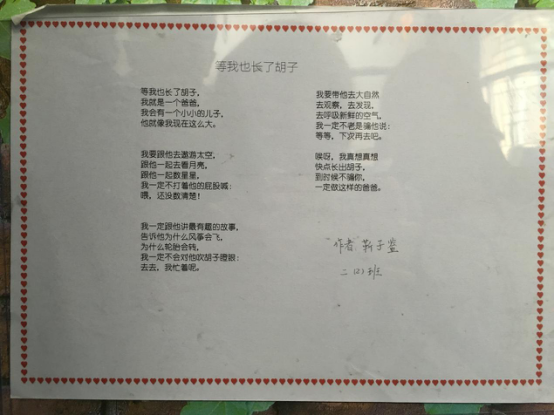 等我也长了胡子
等我也长了胡子,
我就是一个爸爸,
我会有一个小小的儿子,
他就像我现在这么大。
我要跟他去遨游太空,
跟他一起去看月亮,
跟他一起数星星,
我一定不打着他的屁股喊:
喂,还没数清楚!
我一定跟他讲最有趣的故事,
告诉他为什么风筝会飞,
为什么轮胎会转,
我一定不会对他吹胡子瞪眼:
去去,我忙着呢。
我要带他去大自然
去观察,去发现,
去呼吸新鲜的空气,
我一定不老是骗他说:
等等,下次再去吧。
唉呀,我真想真想
快点长出胡子,
到时候不骗你,
一定做这样的爸爸。
"作者" 靳子萱
二(2)班